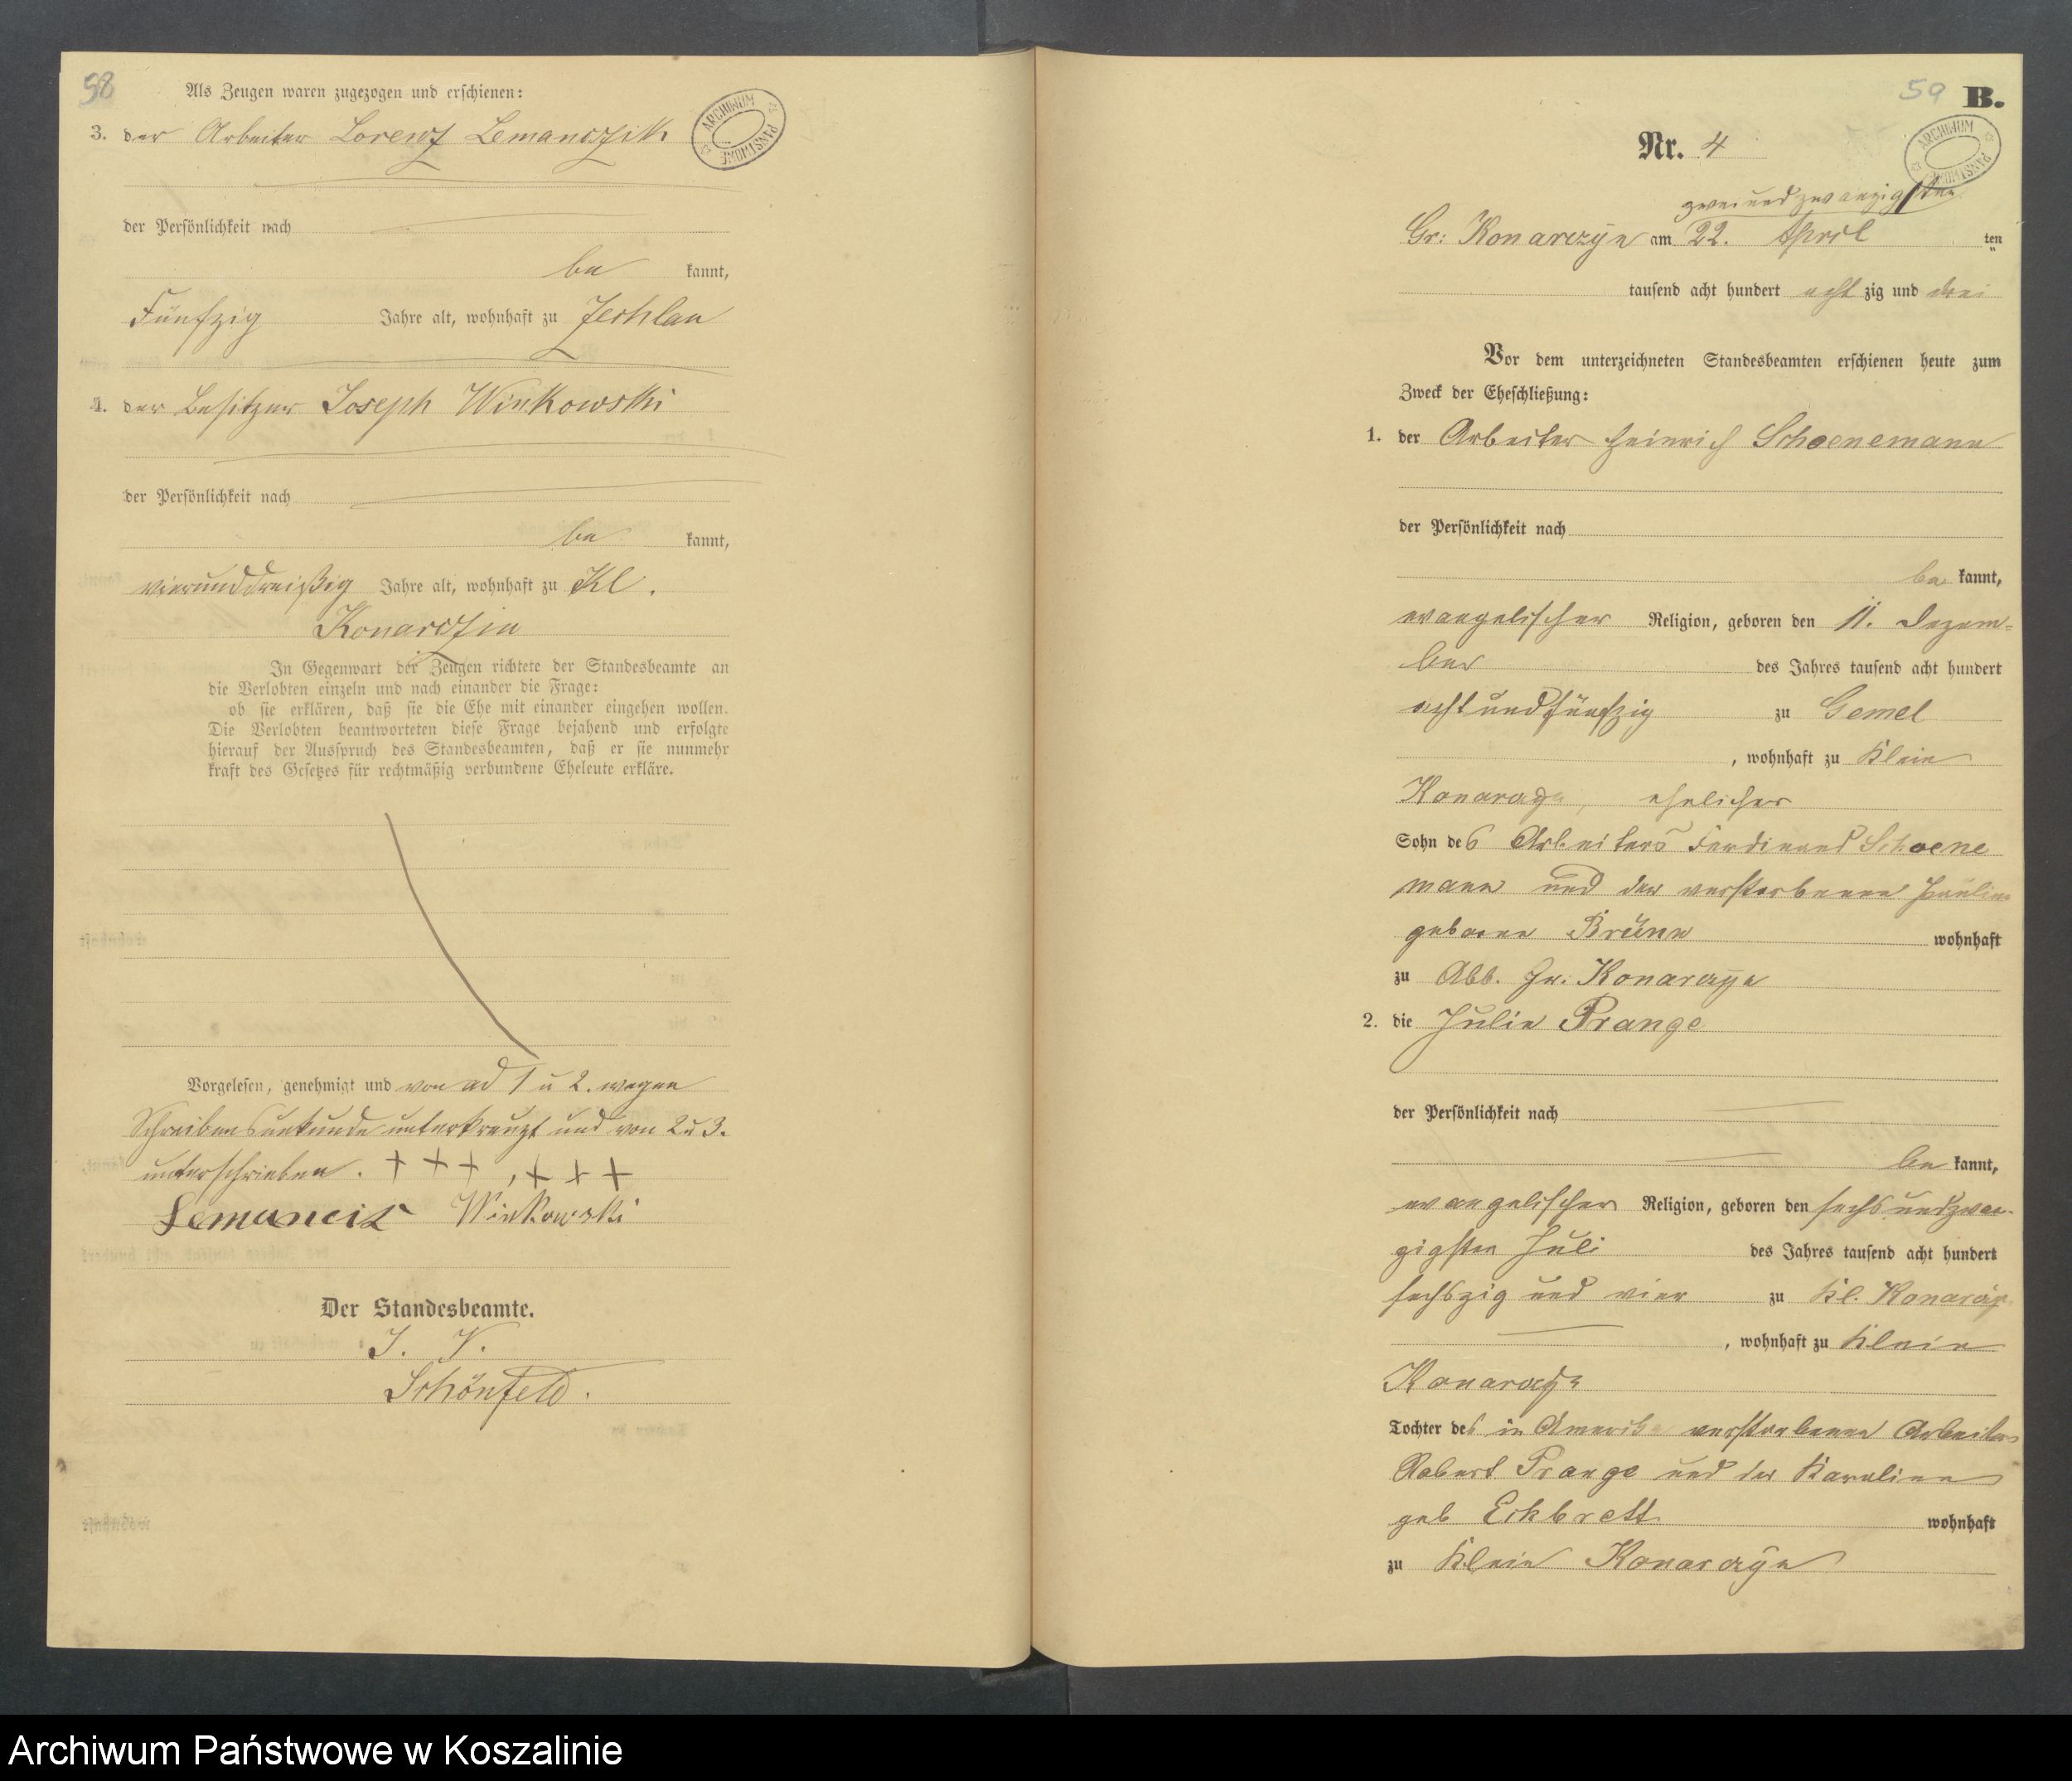 58
Als Zeugen waren zugezogen und erschienen:
3. der Arbeiter Lorenz Lemanczik
ARCHIWUM PAŃSTWOWE
der Persönlichkeit nach
be kannt,
Fünfzig Jahre alt, wohnhaft zu Zechlau
4. der Besitzer Joseph Winkowski
der Persönlichkeit nach
be kannt,
vierunddreißig Jahre alt, wohnhaft zu Kl.
Konarczin
In Gegenwart der Zeugen richtete der Standesbeamte an
die Verlobten einzeln und nach einander die Frage:
ob sie erklären, daß sie die Ehe mit einander eingehen wollen.
Die Verlobten beantworteten diese Frage bejahend und erfolgte
hierauf der Ausspruch des Standesbeamten, daß er sie nunmehr
kraft des Gesetzes für rechtmäßig verbundene Eheleute erkläre.
Vorgelesen, genehmigt und von ad 1 u 2. wegen
Schreibensunkunde unterkreuzt und von 2 u 3.
unterschrieben. +++, +++
Lemancik Winkowski
Der Standesbeamte.
I. V.
Schönfeld.
59 B.
ARCHIWUM PAŃSTWOWE
Nr. 4
zweiundzwanzigsten
Gr: Konarczyn am 22. April ten
tausend acht hundert acht zig und drei
Vor dem unterzeichneten Standesbeamten erschienen heute zum
Zweck der Eheschließung:
1. der Arbeiter Heinrich Schoenemann
der Persönlichkeit nach
be kannt,
evangelischer Religion, geboren den 11. Dezem-
ber des Jahres tausend acht hundert
achtundfünfzig zu Gemel
, wohnhaft zu Klein
Konarczyn, ehelicher
Sohn des Arbeiters Ferdinand Schoene
mann und der verstorbenen Pauline
geborne Brünn wohnhaft
zu Abb. Gr. Konarczyn
2. die Julie Prange
der Persönlichkeit nach
be kannt,
evangelischer Religion, geboren den sechsundzwan-
zigsten Juli des Jahres tausend acht hundert
sechszig und vier zu Kl. Konarczyn
, wohnhaft zu Klein
Konarczyn
Tochter des in Amerika verstorbenen Arbeiters
Robert Prange und der Karoline
geb Eckbrett wohnhaft
zu Klein Konarczyn
Archiwum Państwowe w Koszalinie